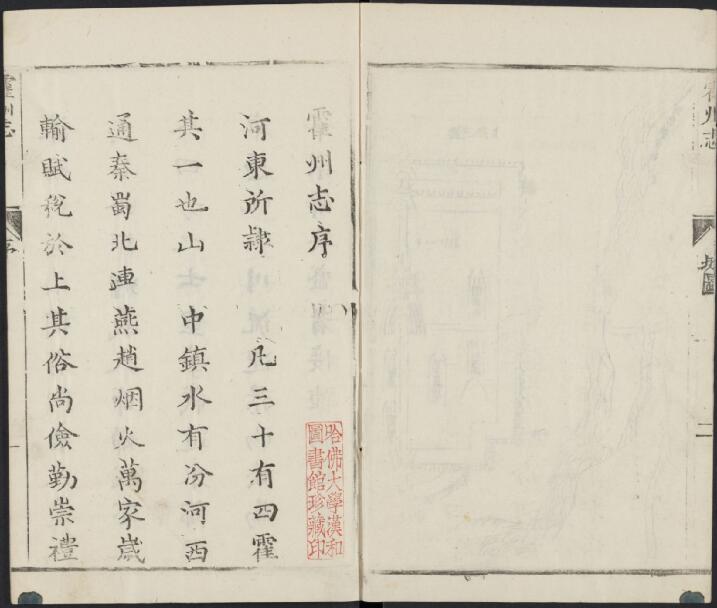 霍州志
圖
二
霍州志序
哈佛大學漢和
圖書館珍藏印
河東所隷 凡三十有四霍
其一也山 中鎮水有汾河西
通秦蜀北連燕趙烟火萬家歲
輸賦稅於上其俗尚儉勤崇禮
霍州志
序
一